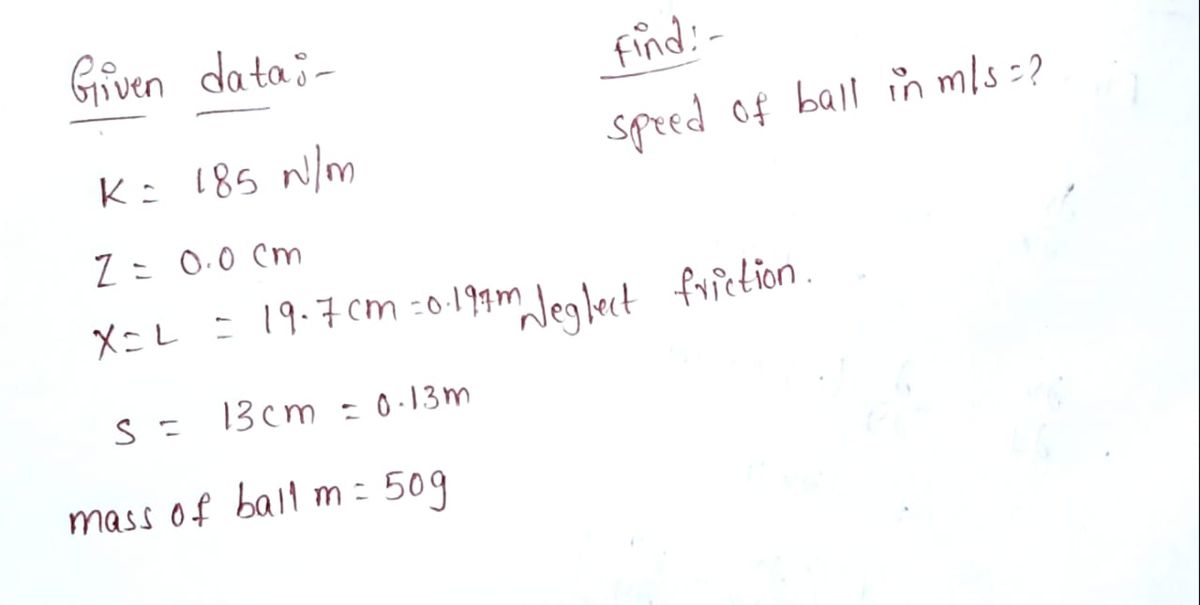 Given data:-
find:-
speed of ball in m/s =?
K = 185 N/m
Z = 0.0 cm
X=L = 19.7cm =0.197m Neglect friction.
S = 13cm = 0.13m
mass of ball m = 50g